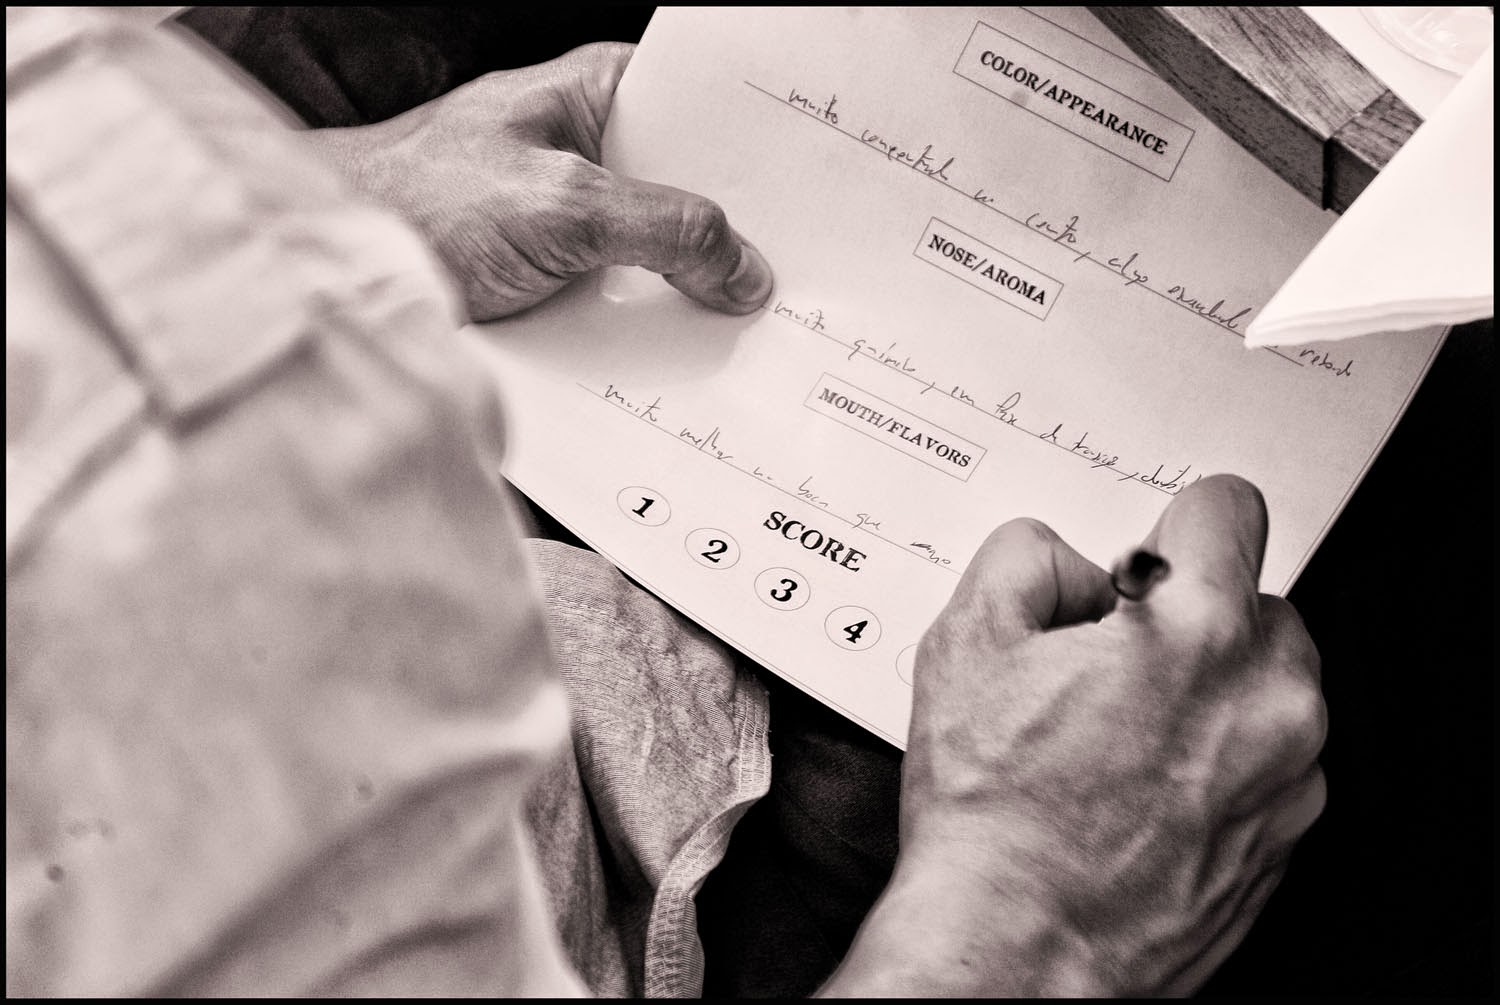 COLOR/APPEARANCE
muito concentrado no centro, algo
NOSE/AROMA
muito químico, em fase de
MOUTH/FLAVORS
muito melhor na boca que
SCORE
1 2 3 4